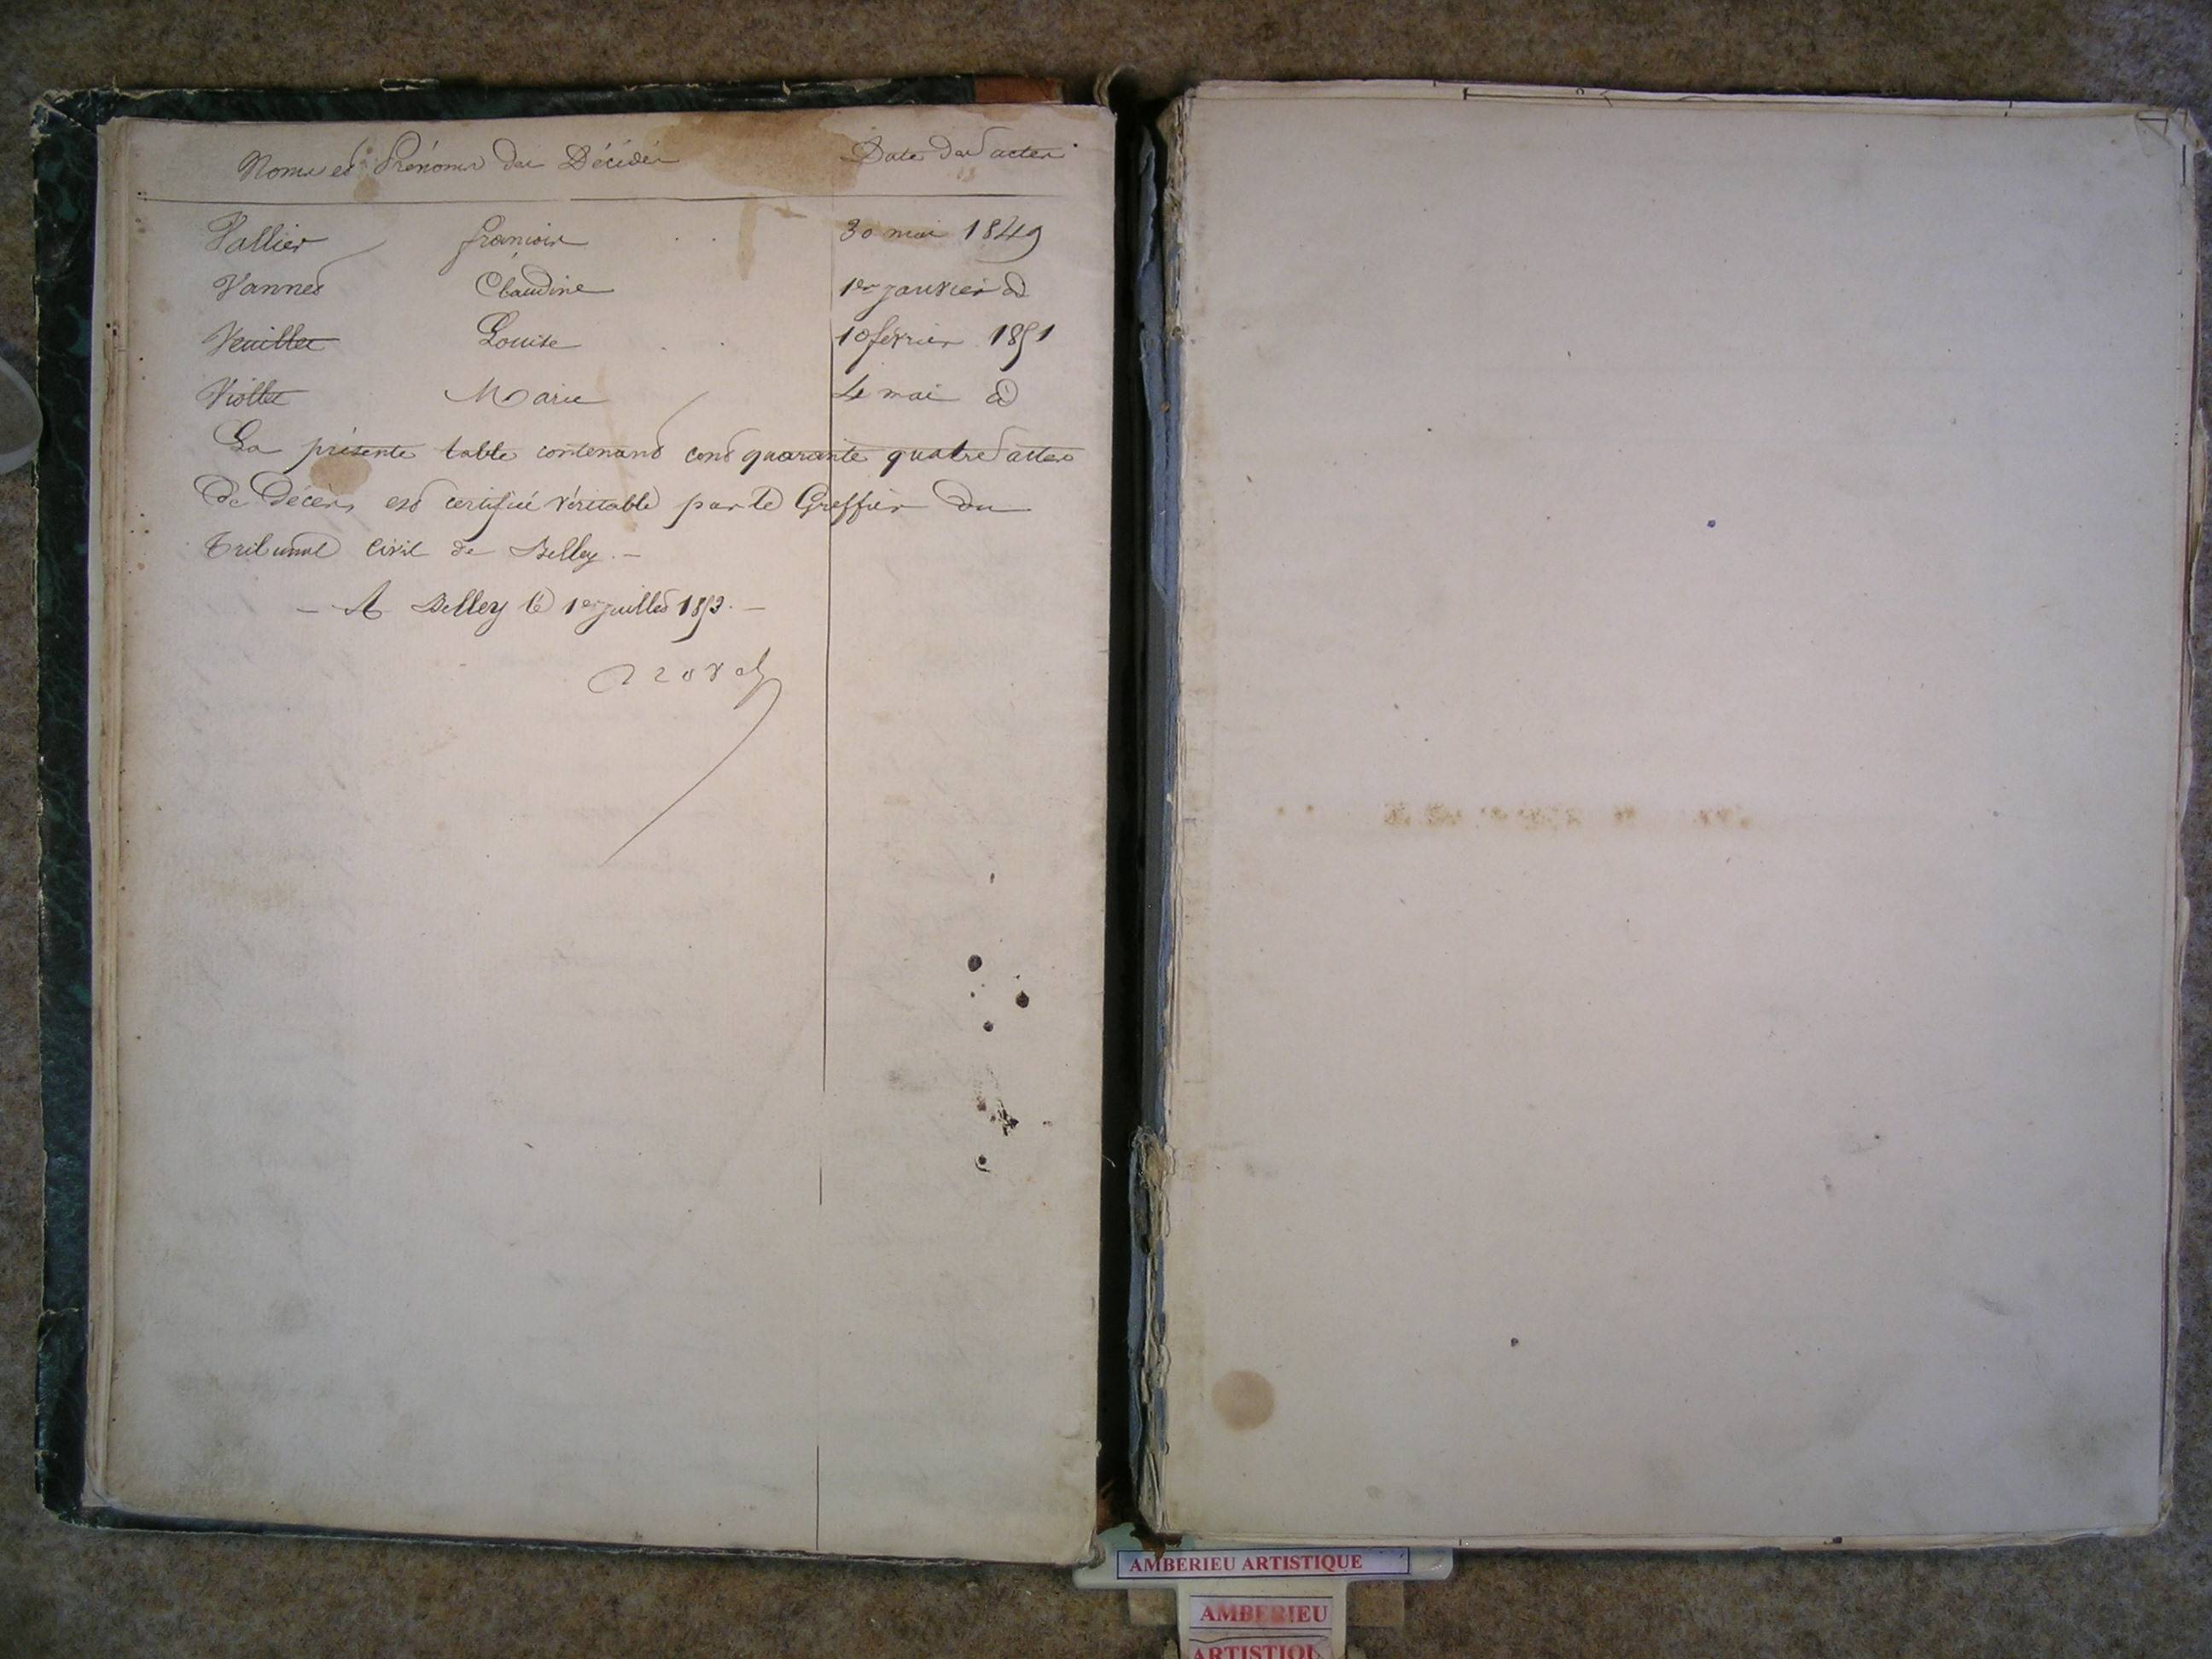 Noms et Prénoms des Décédés Date des actes
Vallier françois 30 mai 1849
Vannet Claudine 1er janvier do
Veuillet Louise 10 février 1851
Viollet Marie 4 mai do
La présente table contenant cent quarante quatre actes
de décès est certifié véritable par le Greffier du
Tribunal Civil de Belley. —
— A Belley le 1er juillet 1853. —
AMBERIEU ARTISTIQUE
AMBERIEU
ARTISTIQU